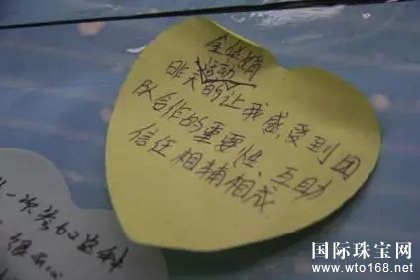 活动
昨天的让我感受到团
队合作的重要性、互助
信任相辅相成
一次参加这种
国际珠宝网
www.wto168.net